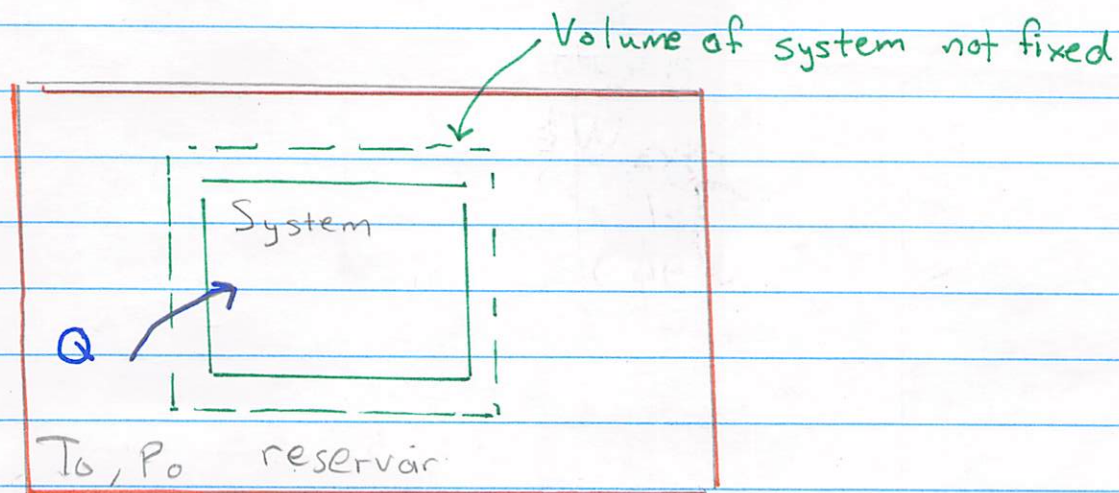 Volume of system not fixed
System
Q
To, Po reservoir